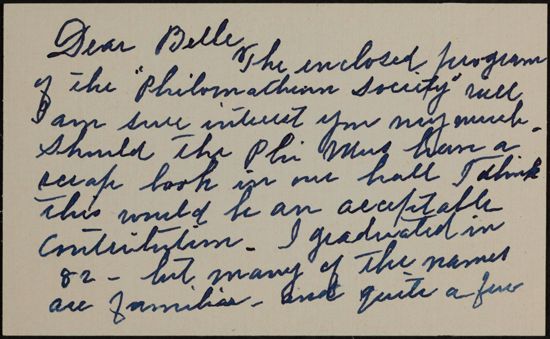 Dear Belle,
The enclosed program
of the "Philomathean Society" will
I am sure interest you very much.
Should the Phi Mus have a
scrap book in our hall I think
this would be an acceptable
contribution - I graduated in
82 - but many of the names
are familiar - and quite a few